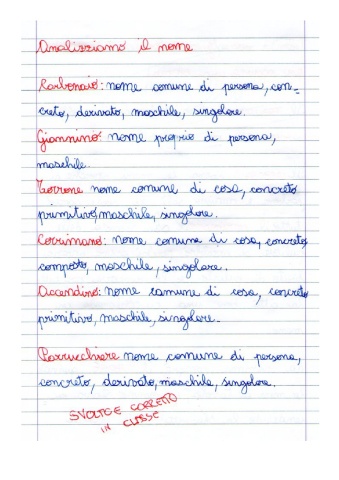 Analizziamo il nome
Carbonaio: nome comune di persona, con=
creto, derivato, maschile, singolare.
Giannino: nome proprio di persona,
maschile.
Torrone nome comune di cosa, concreto
primitivo, maschile, singolare.
Corrimano: nome comune di cosa, concreto,
composto, maschile, singolare.
Accendino: nome comune di cosa, concreto
primitivo, maschile, singolare.
Parrucchiere nome comune di persona,
concreto, derivato, maschile, singolare.
SVOLTO E CORRETTO
IN CLASSE